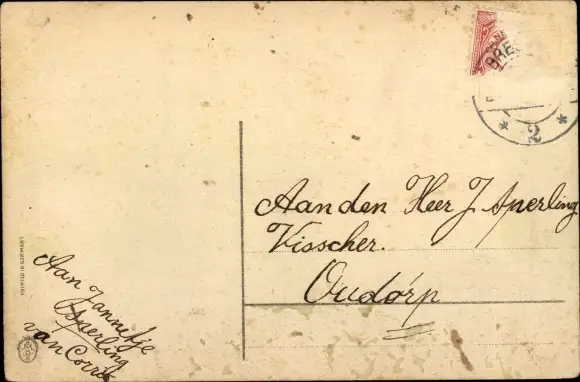 BRE
* 2 *
Aan den Heer J Sperling
Visscher.
Oudorp
PRINTED IN GERMANY
Aan Jannetje
Sperling
van Corra